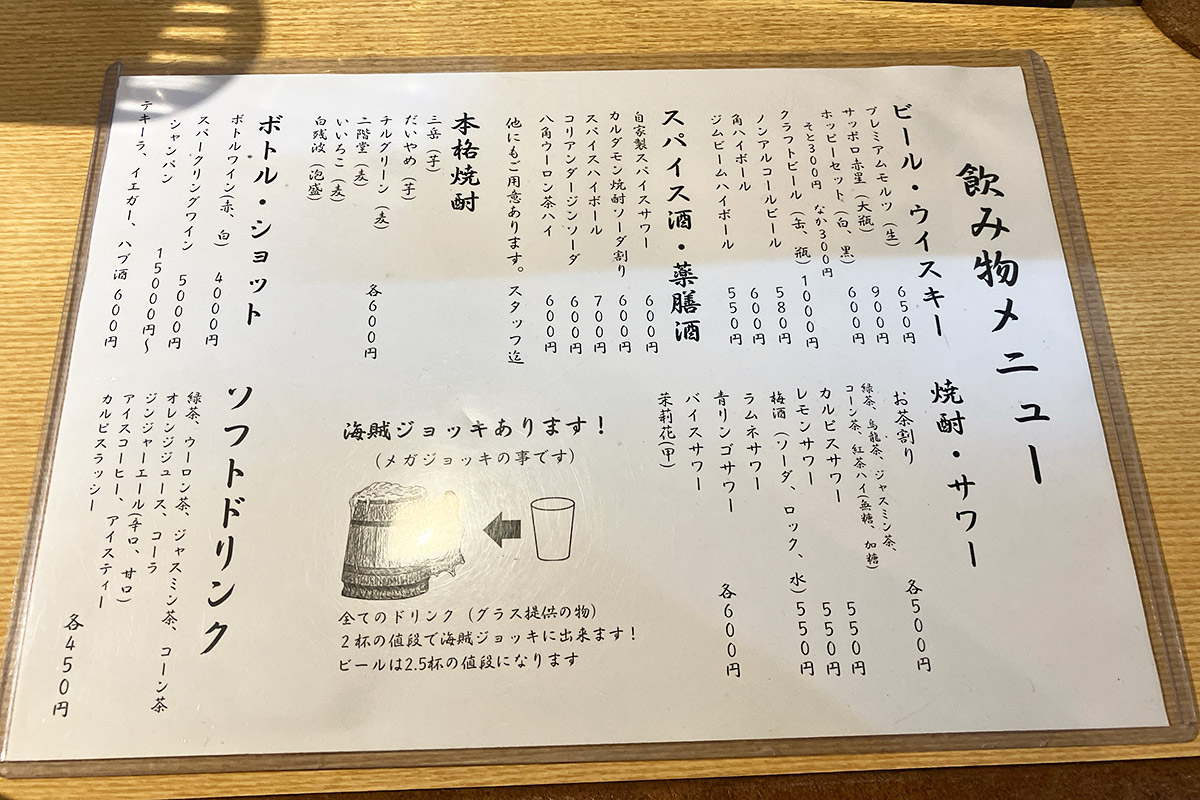 飲み物メニュー
ビール・ウイスキー
プレミアムモルツ（生） 650円
サッポロ赤星（大瓶） 900円
ホッピーセット（白、黒） 600円
そと300円 なか300円
クラフトビール（缶、瓶） 1000円
ノンアルコールビール 580円
角ハイボール 600円
ジムビームハイボール 550円
スパイス酒・薬膳酒
自家製スパイスサワー 600円
カルダモン焼酎ソーダ割り 600円
スパイスハイボール 700円
コリアンダージンソーダ 600円
八角ウーロン茶ハイ 600円
他にもご用意あります。スタッフ迄
本格焼酎
三岳（芋）
だいやめ（芋）
チルグリーン（麦）
二階堂（麦）
いいちこ（麦）
白残波（泡盛）
各600円
ボトル・ショット
ボトルワイン（赤、白） 4000円
スパークリングワイン 5000円
シャンパン 15000円～
テキーラ、イエガー、ハブ酒 600円
焼酎・サワー
お茶割り 各500円
緑茶、烏龍茶、ジャスミン茶、
コーン茶、紅茶ハイ（無糖、加糖）
カルピスサワー 550円
レモンサワー 550円
梅酒（ソーダ、ロック、水） 550円
ラムネサワー
青リンゴサワー
バイスサワー
茉莉花（甲）
各600円
海賊ジョッキあります！
（メガジョッキの事です）
全てのドリンク（グラス提供の物）
２杯の値段で海賊ジョッキに出来ます！
ビールは2.5杯の値段になります
ソフトドリンク
緑茶、ウーロン茶、ジャスミン茶、コーン茶
オレンジジュース、コーラ
ジンジャーエール（辛口、甘口）
アイスコーヒー、アイスティー
カルピスラッシー
各450円